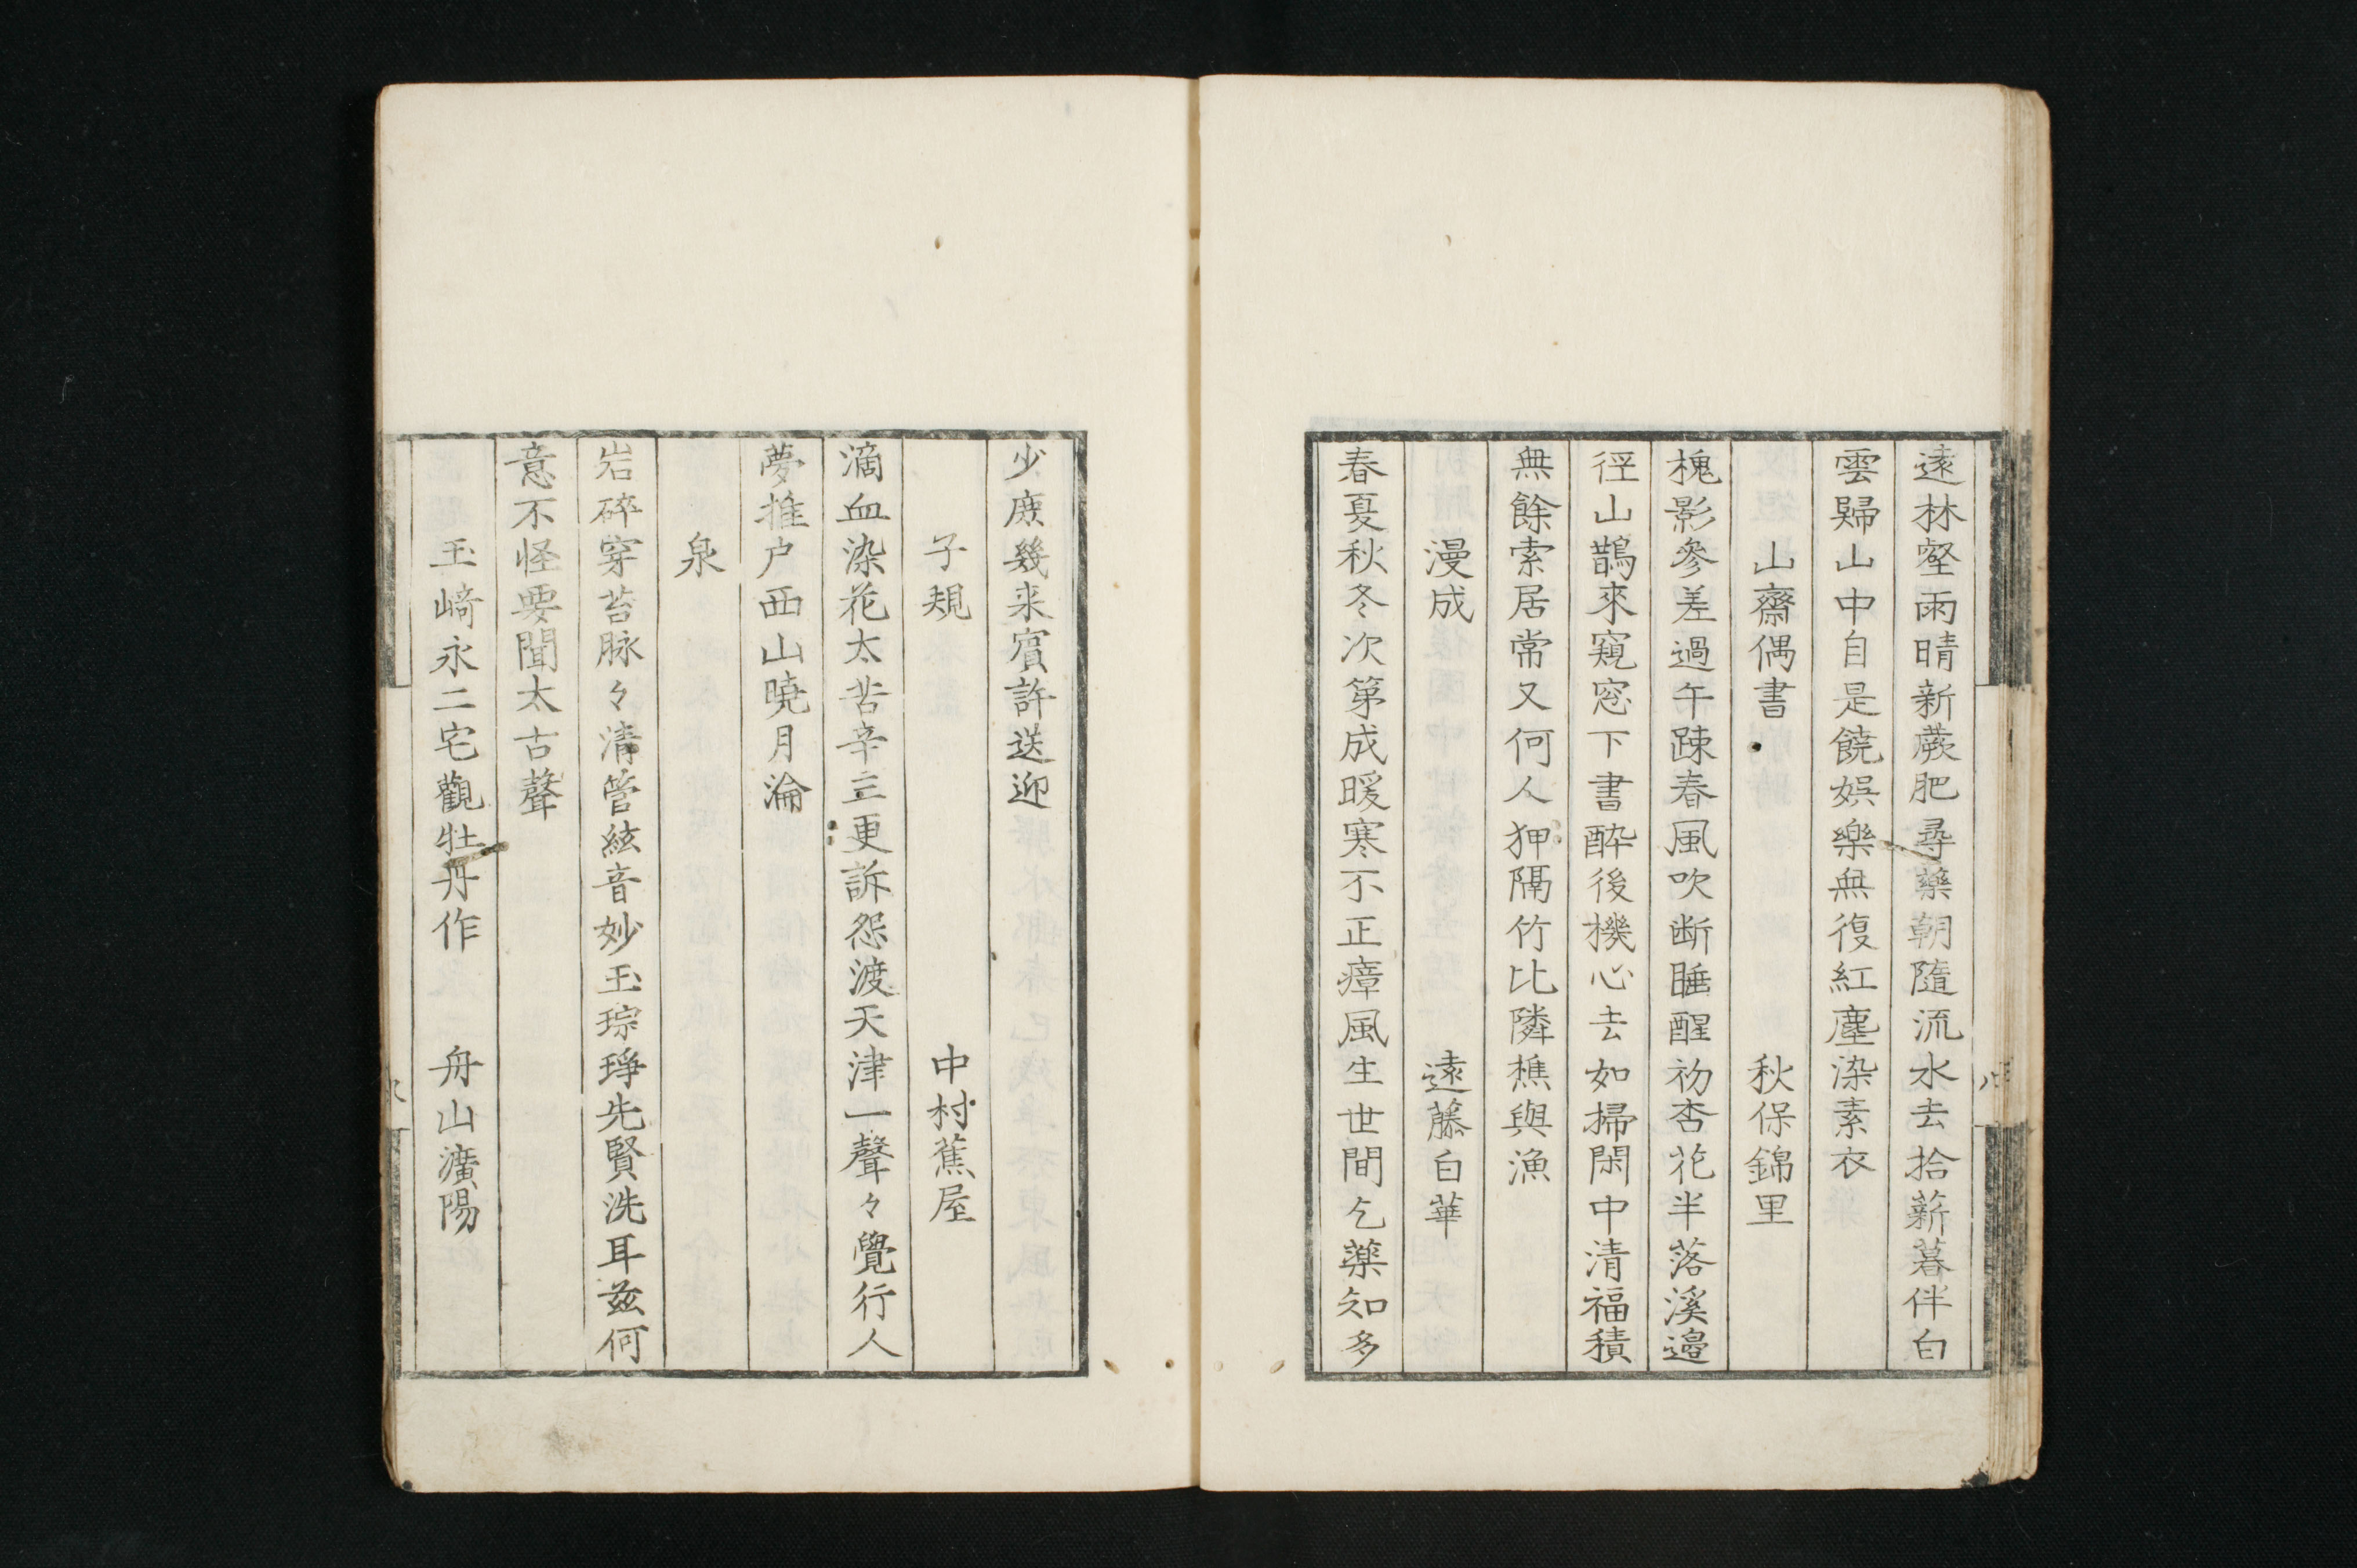 遠林壑雨晴新蕨肥尋藥朝隨流水去拾薪暮伴白
雲歸山中自是饒娯樂無復紅塵染素衣
山齋偶書　秋保錦里
槐影參差過午踈春風吹断睡醒初杏花半落溪邉
徑山鵲來窺窓下書酔後機心去如掃閑中清福積
無餘索居常又何人狎隔竹比隣樵與漁
漫成　遠藤白華
春夏秋冬次第成暖寒不正瘴風生世間乞藥知多
少庶幾来賓許送迎
子規　中村蕉屋
滴血染花太苦辛三更訴怨渡天津一聲々覺行人
夢推户西山曉月淪
泉
岩碎穿苔脉々清管絃音妙玉琮琤先賢洗耳兹何
意不怪要聞太古聲
玉﨑永二宅觀牡丹作　舟山瀇陽